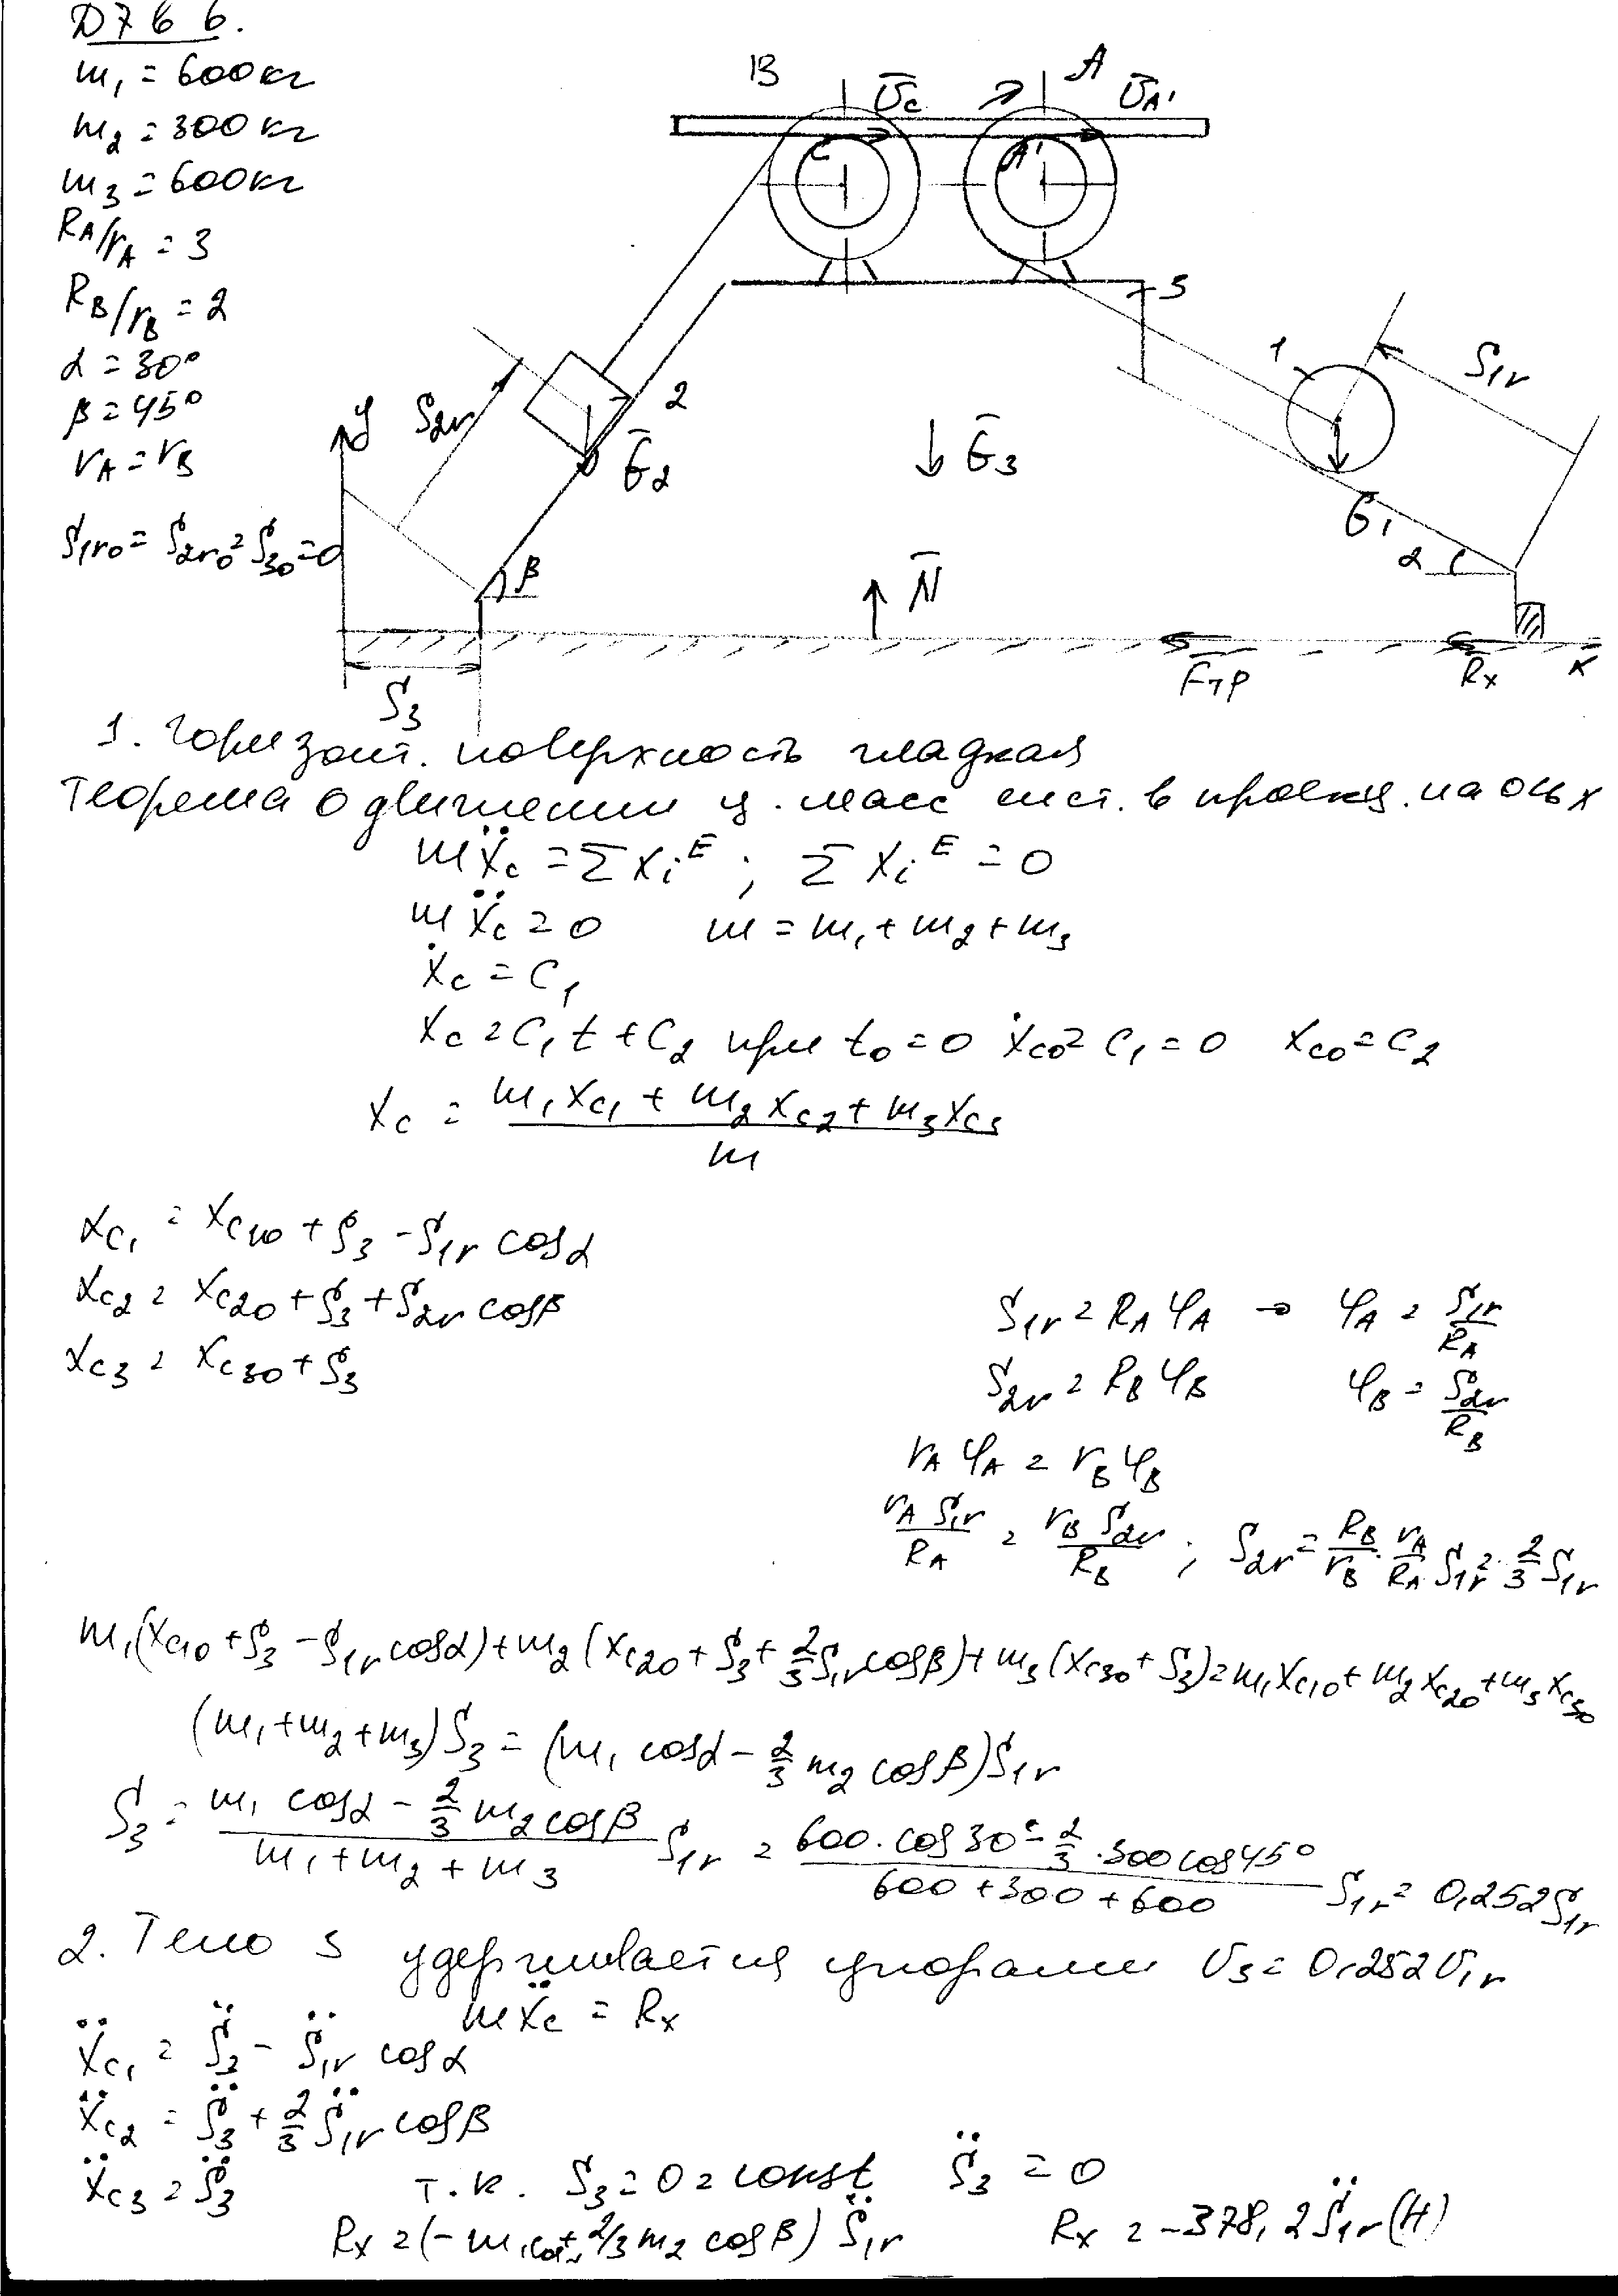 Д7 В 6.
m₁ = 600 кг
m₂ = 300 кг
m₃ = 600 кг
R_A/r_A = 3
R_B/r_B = 2
α = 30°
β = 45°
r_A = r_B
S₁r₀ = S₂r₀ = S₃₀ = 0
B A
V̄_C V̄_A'
C A'
3
1 S₁r
y S₂r 2
Ḡ₂ Ḡ₃
Ḡ₁
α
β N̄
S₃ F̄тр R̄x x
1. Горизонт. поверхность гладкая
Теорема о движении ц. масс сист. в проекц. на ось x
mẍ_C = ΣX_i^E ; ΣX_i^E = 0
mẍ_C = 0 m = m₁ + m₂ + m₃
ẋ_C = C₁
x_C = C₁t + C₂ при t₀ = 0 ẋ_C0 = C₁ = 0 x_C0 = C₂
x_C = (m₁x_C1 + m₂x_C2 + m₃x_C3)/m
x_C1 = x_C10 + S₃ - S₁r cosα
x_C2 = x_C20 + S₃ + S₂r cosβ
x_C3 = x_C30 + S₃
S₁r = R_A φ_A → φ_A = S₁r/R_A
S₂r = R_B φ_B φ_B = S₂r/R_B
r_A φ_A = r_B φ_B
r_A S₁r/R_A = r_B S₂r/R_B ; S₂r = R_B/r_B · r_A/R_A S₁r = 2/3 S₁r
m₁(x_C10 + S₃ - S₁r cosα) + m₂(x_C20 + S₃ + 2/3 S₁r cosβ) + m₃(x_C30 + S₃) = m₁x_C10 + m₂x_C20 + m₃x_C30
(m₁ + m₂ + m₃)S₃ = (m₁ cosα - 2/3 m₂ cosβ)S₁r
S₃ = (m₁ cosα - 2/3 m₂ cosβ)/(m₁ + m₂ + m₃) S₁r = (600·cos30° - 2/3·300cos45°)/(600 + 300 + 600) S₁r = 0,252S₁r
2. Тело 3 удерживается упорами V₃ = 0,252V₁r
mẍ_C = Rx
ẍ_C1 = S̈₃ - S̈₁r cosα
ẍ_C2 = S̈₃ + 2/3 S̈₁r cosβ
ẍ_C3 = S̈₃ т.к. S₃ = 0 = const S̈₃ = 0
Rx = (-m₁cosα + 2/3 m₂ cosβ) S̈₁r Rx = -378,2 S̈₁r (Н)